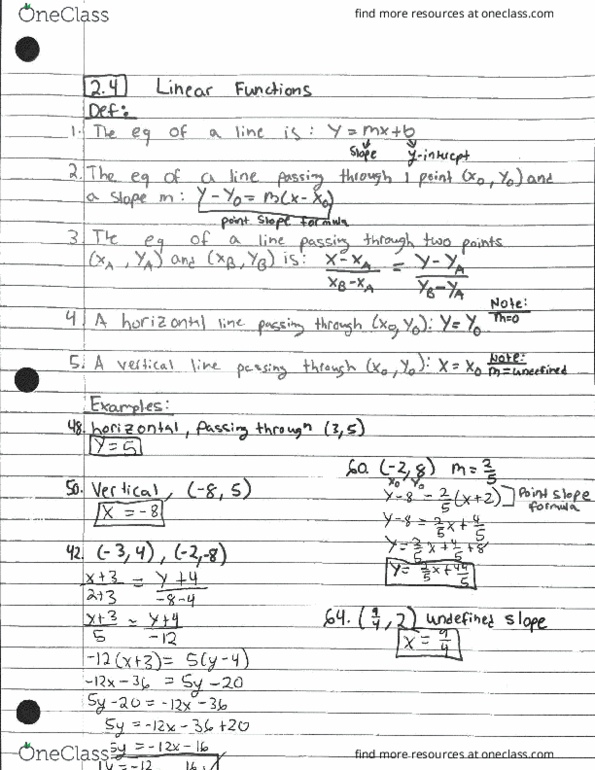 OneClass
find more resources at oneclass.com
2.4 Linear Functions
Def:
1. The eq of a line is: y = mx+b
slope y-intercept
2. The eq of a line passing through 1 point (x₀, y₀) and
a slope m: y-y₀ = m(x-x₀)
point slope formula
3. The eq of a line passing through two points
(xA, yA) and (xB, yB) is: x-xA / xB-xA = y-yA / yB-yA
4. A horizontal line passing through (x₀, y₀): y = y₀ Note: m=0
5. A vertical line passing through (x₀, y₀): x = x₀ Note: m = undefined
Examples:
48. horizontal, passing through (3,5)
y = 5
50. Vertical, (-8, 5)
x = -8
42. (-3,4), (-2,-8)
x+3 / 2+3 = y+4 / -8-4
x+3 / 5 = y+4 / -12
-12(x+3) = 5(y-4)
-12x-36 = 5y-20
5y-20 = -12x-36
5y = -12x-36+20
5y = -12x-16
60. (-2,8) m = 2/5
x₀ y₀
y-8 = 2/5(x+2) ] Point slope formula
y-8 = 2/5x + 4/5
y = 2/5x + 4/5 + 8
y = 2/5x + 44/5
64. (9/4, 2) undefined slope
x = 9/4
OneClass
find more resources at oneclass.com